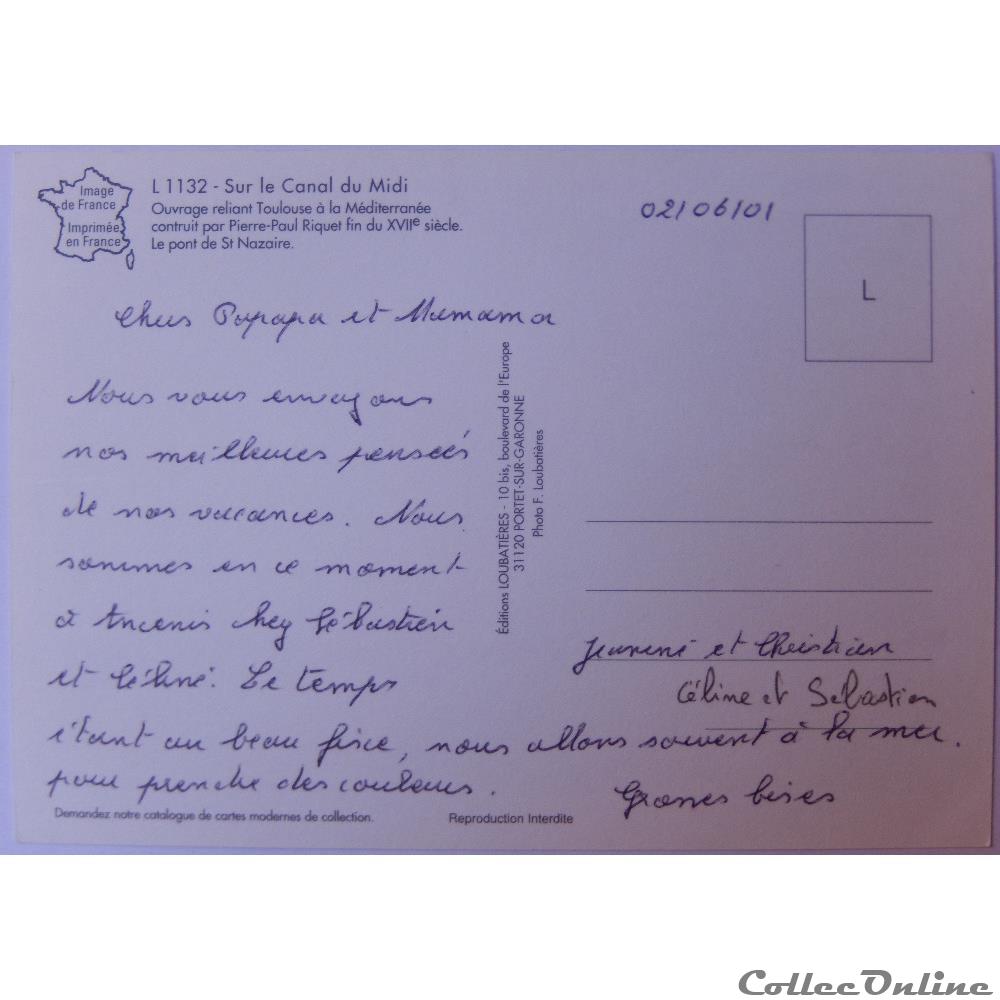 Image
de France
Imprimée
en France
L 1132 - Sur le Canal du Midi
Ouvrage reliant Toulouse à la Méditerranée
contruit par Pierre-Paul Riquet fin du XVIIe siècle.
Le pont de St Nazaire.
02/06/01
L
Chers Papapa et Mamama
Nous vous envoyons
nos meilleures pensées
de nos vacances. Nous
sommes en ce moment
à Ancenis chez Sébastien
et Céline. Le temps
étant au beau fixe, nous allons souvent à la mer.
pour prendre des couleurs.
Grosses bises
Jeannine et Christian
Céline et Sébastien
Éditions LOUBATIÈRES - 10 bis, boulevard de l'Europe
31120 PORTET-SUR-GARONNE
Photo F. Loubatières
Demandez notre catalogue de cartes modernes de collection.
Reproduction Interdite
CollecOnline